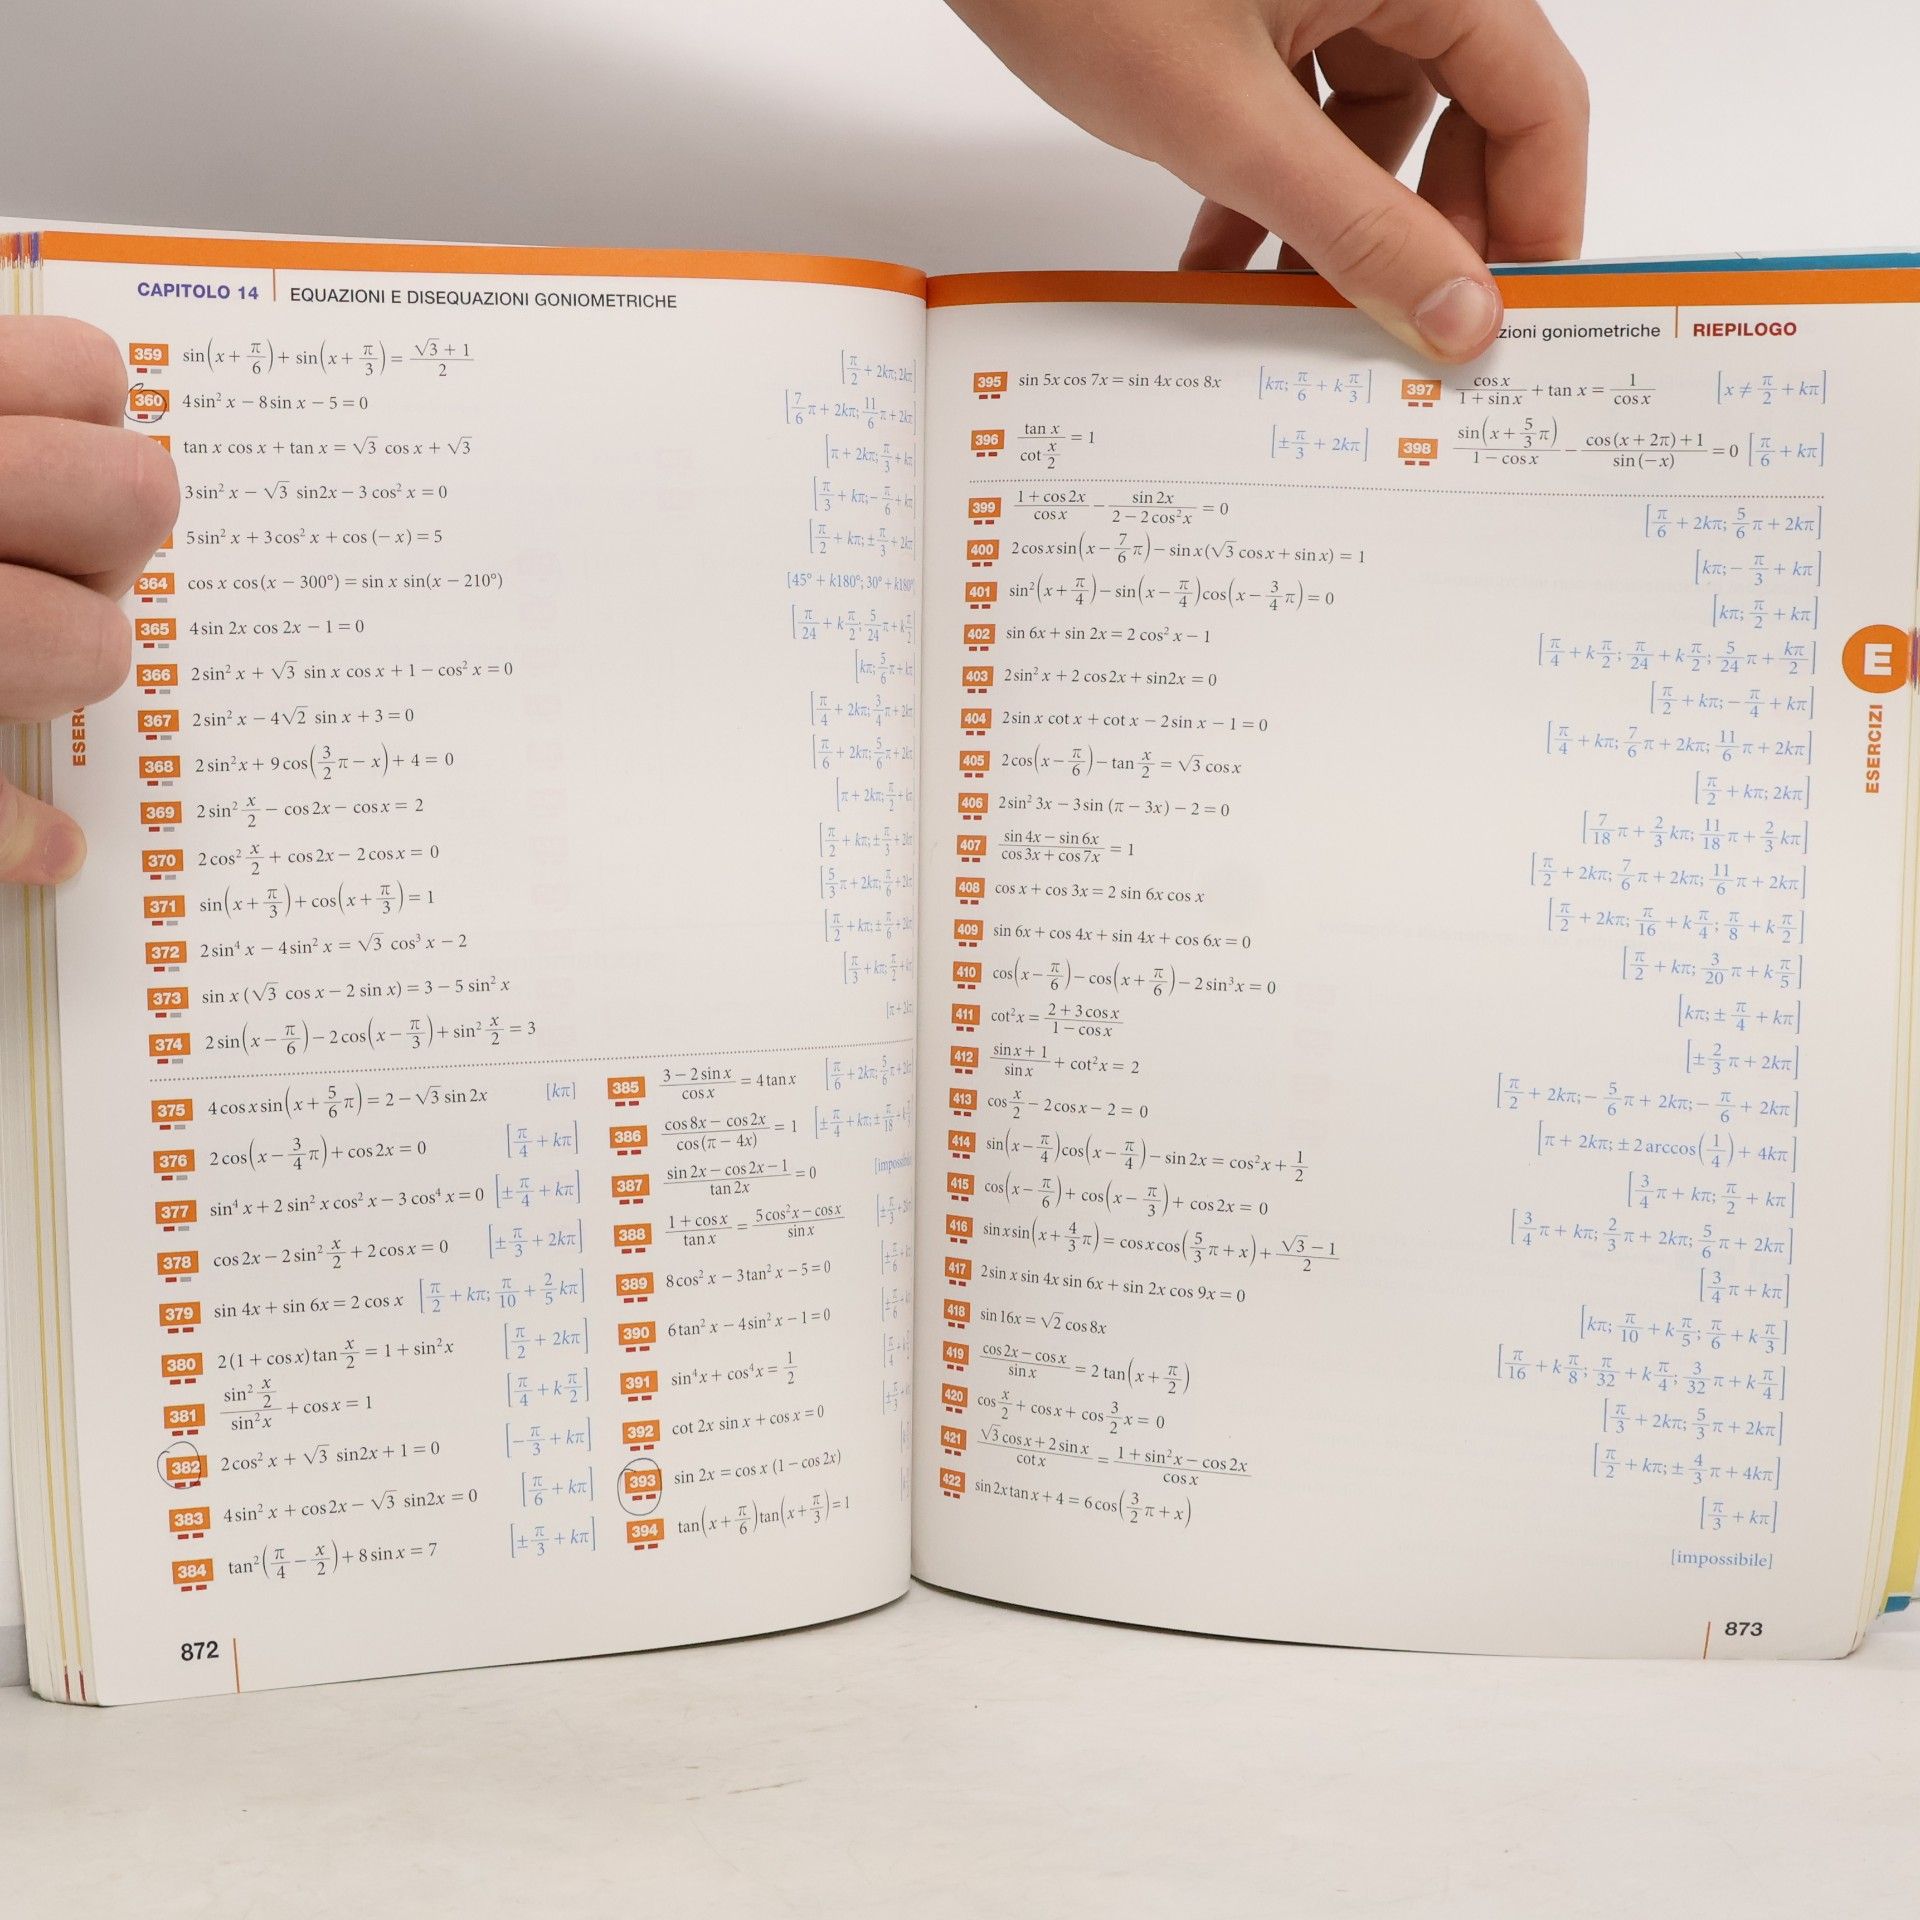 CAPITOLO 14 | EQUAZIONI E DISEQUAZIONI GONIOMETRICHE
359 sin(x + π/6) + sin(x + π/3) = (√3 + 1)/2 [π/2 + 2kπ; 2kπ]
360 4 sin² x − 8 sin x − 5 = 0 [7/6 π + 2kπ; 11/6 π + 2kπ]
tan x cos x + tan x = √3 cos x + √3 [π + 2kπ; π/3 + kπ]
3 sin² x − √3 sin2x − 3 cos² x = 0 [π/3 + kπ; − π/6 + kπ]
5 sin² x + 3 cos² x + cos (− x) = 5 [π/2 + kπ; ± π/3 + 2kπ]
364 cos x cos (x − 300°) = sin x sin(x − 210°) [45° + k180°; 30° + k180°]
365 4 sin 2x cos 2x − 1 = 0 [π/24 + k π/2; 5/24 π + k π/2]
366 2 sin² x + √3 sin x cos x + 1 − cos² x = 0 [kπ; 5/6 π + kπ]
367 2 sin² x − 4√2 sin x + 3 = 0 [π/4 + 2kπ; 3/4 π + 2kπ]
368 2 sin²x + 9 cos(3/2 π − x) + 4 = 0 [π/6 + 2kπ; 5/6 π + 2kπ]
369 2 sin² x/2 − cos 2x − cos x = 2 [π + 2kπ; π/2 + kπ]
370 2 cos² x/2 + cos 2x − 2 cos x = 0 [π/2 + kπ; ± π/3 + 2kπ]
371 sin(x + π/3) + cos(x + π/3) = 1 [5/3 π + 2kπ; π/6 + 2kπ]
372 2 sin⁴ x − 4 sin² x = √3 cos³ x − 2 [π/2 + kπ; ± π/6 + 2kπ]
373 sin x (√3 cos x − 2 sin x) = 3 − 5 sin² x [π/3 + kπ; π/2 + kπ]
374 2 sin(x − π/6) − 2 cos(x − π/3) + sin² x/2 = 3 [π + 2kπ]
375 4 cos x sin(x + 5/6 π) = 2 − √3 sin 2x [kπ]
376 2 cos(x − 3/4 π) + cos 2x = 0 [π/4 + kπ]
377 sin⁴ x + 2 sin² x cos² x − 3 cos⁴ x = 0 [± π/4 + kπ]
378 cos 2x − 2 sin² x/2 + 2 cos x = 0 [± π/3 + 2kπ]
379 sin 4x + sin 6x = 2 cos x [π/2 + kπ; π/10 + 2/5 kπ]
380 2 (1 + cos x) tan x/2 = 1 + sin² x [π/2 + 2kπ]
381 (sin² x/2)/(sin² x) + cos x = 1 [π/4 + k π/2]
382 2 cos² x + √3 sin2x + 1 = 0 [− π/3 + kπ]
383 4 sin² x + cos 2x − √3 sin2x = 0 [π/6 + kπ]
384 tan²(π/4 − x/2) + 8 sin x = 7 [± π/3 + kπ]
385 (3 − 2 sin x)/(cos x) = 4 tan x [π/6 + 2kπ; 5/6 π + 2kπ]
386 (cos 8x − cos 2x)/(cos (π − 4x)) = 1
387 (sin 2x − cos 2x − 1)/(tan 2x) = 0
388 (1 + cos x)/(tan x) = (5 cos² x − cos x)/(sin x)
389 8 cos² x − 3 tan² x − 5 = 0
390 6 tan² x − 4 sin² x − 1 = 0
391 sin⁴ x + cos⁴ x = 1/2
392 cot 2x sin x + cos x = 0
393 sin 2x = cos x (1 − cos 2x)
394 tan(x + π/6) tan(x + π/3) = 1
872
zioni goniometriche | RIEPILOGO
395 sin 5x cos 7x = sin 4x cos 8x [kπ; π/6 + k π/3]
396 (tan x)/(cot x/2) = 1 [± π/3 + 2kπ]
397 (cos x)/(1 + sin x) + tan x = 1/(cos x) [x ≠ π/2 + kπ]
398 (sin(x + 5/3 π))/(1 − cos x) − (cos (x + 2π) + 1)/(sin (−x)) = 0 [π/6 + kπ]
399 (1 + cos 2x)/(cos x) − (sin 2x)/(2 − 2 cos² x) = 0 [π/6 + 2kπ; 5/6 π + 2kπ]
400 2 cos x sin(x − 7/6 π) − sin x (√3 cos x + sin x) = 1 [kπ; − π/3 + kπ]
401 sin²(x + π/4) − sin(x − π/4) cos(x − 3/4 π) = 0 [kπ; π/2 + kπ]
402 sin 6x + sin 2x = 2 cos² x − 1 [π/4 + k π/2; π/24 + k π/2; 5/24 π + kπ/2]
403 2 sin² x + 2 cos 2x + sin2x = 0 [π/2 + kπ; − π/4 + kπ]
404 2 sin x cot x + cot x − 2 sin x − 1 = 0 [π/4 + kπ; 7/6 π + 2kπ; 11/6 π + 2kπ]
405 2 cos(x − π/6) − tan x/2 = √3 cos x [π/2 + kπ; 2kπ]
406 2 sin² 3x − 3 sin (π − 3x) − 2 = 0 [7/18 π + 2/3 kπ; 11/18 π + 2/3 kπ]
407 (sin 4x − sin 6x)/(cos 3x + cos 7x) = 1 [π/2 + 2kπ; 7/6 π + 2kπ; 11/6 π + 2kπ]
408 cos x + cos 3x = 2 sin 6x cos x [π/2 + 2kπ; π/16 + k π/4; π/8 + k π/2]
409 sin 6x + cos 4x + sin 4x + cos 6x = 0 [π/2 + kπ; 3/20 π + k π/5]
410 cos(x − π/6) − cos(x + π/6) − 2 sin³ x = 0 [kπ; ± π/4 + kπ]
411 cot² x = (2 + 3 cos x)/(1 − cos x) [± 2/3 π + 2kπ]
412 (sin x + 1)/(sin x) + cot² x = 2 [π/2 + 2kπ; − 5/6 π + 2kπ; − π/6 + 2kπ]
413 cos x/2 − 2 cos x − 2 = 0 [π + 2kπ; ± 2 arccos(1/4) + 4kπ]
414 sin(x − π/4) cos(x − π/4) − sin 2x = cos² x + 1/2 [3/4 π + kπ; π/2 + kπ]
415 cos(x − π/6) + cos(x − π/3) + cos 2x = 0 [3/4 π + kπ; 2/3 π + 2kπ; 5/6 π + 2kπ]
416 sin x sin(x + 4/3 π) = cos x cos(5/3 π + x) + (√3 − 1)/2 [3/4 π + kπ]
417 2 sin x sin 4x sin 6x + sin 2x cos 9x = 0 [kπ; π/10 + k π/5; π/6 + k π/3]
418 sin 16x = √2 cos 8x [π/16 + k π/8; π/32 + k π/4; 3/32 π + k π/4]
419 (cos 2x − cos x)/(sin x) = 2 tan(x + π/2) [π/3 + 2kπ; 5/3 π + 2kπ]
420 cos x/2 + cos x + cos 3/2 x = 0 [π/2 + kπ; ± 4/3 π + 4kπ]
421 (√3 cos x + 2 sin x)/(cot x) = (1 + sin² x − cos 2x)/(cos x) [π/3 + kπ]
422 sin 2x tan x + 4 = 6 cos(3/2 π + x) [impossibile]
E
ESERCIZI
873